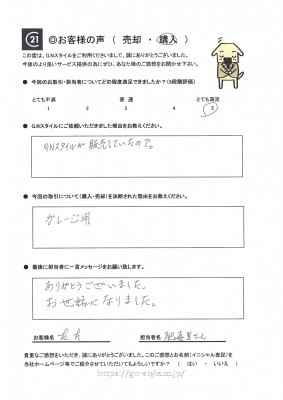 21 ◎お客様の声 ( 売却 ・ 購入 )
この度は、GNスタイルをご利用くださいまして、誠にありがとうございました。
今後のより良いサービス提供の為にぜひ、あなた様のご感想をお聞かせ下さい。
● 今回のお取引・担当者についてどの程度満足できましたか？(5段階評価)
とても不満 普通 とても満足
1 2 3 4 5
● GNスタイルにご依頼いただきました理由をお教えください。
GNスタイルが販売していたので。
● 今回の取引について(購入・売却)を決断された理由をお教えください。
ガレージ用
● 最後に担当者に一言メッセージをお願い致します。
ありがとうございました。
お世話になりました。
お客様名 担当者名 さん
貴重なご感想をいただき、誠にありがとうございました。このご感想とお名前(イニシャル表記)を
当社ホームページ等でご紹介させていただいてもよろしいですか？ ( はい ・ いいえ )
https://gn-style.co.jp/